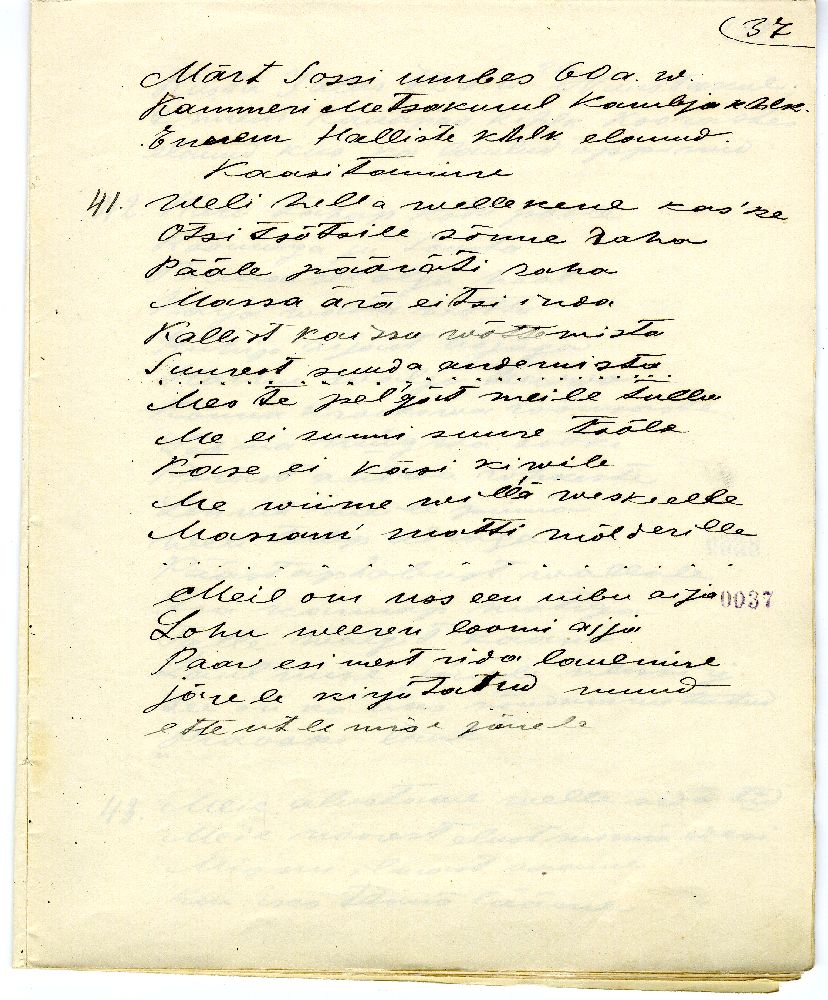 37
Märt Sossi umbes 60 a. w.
Kammeri Metsakurul Kambja khlk.
Ennem Halliste khlk elanud.
Kaasitamine
41. Weli hella wellekene kas'ke
Otsi tsõtsile sõnne raha
Pääle pääräti raha
Massa ärä eitsi inda
Kallist kaissu wõttemista
Suurest suuda andemista
Mes te pel'gät meile tulla
Me ei sunni suure tööle
Pase ei käsi kiwile
Me wiime willä weskeelle
Massami matti mölderille
Meil om uos een uibu aija
0037
Lohu weeren loomi ajja
Paar esimest rida laulmise
järele kirjutatud muud
etteütlemise järele